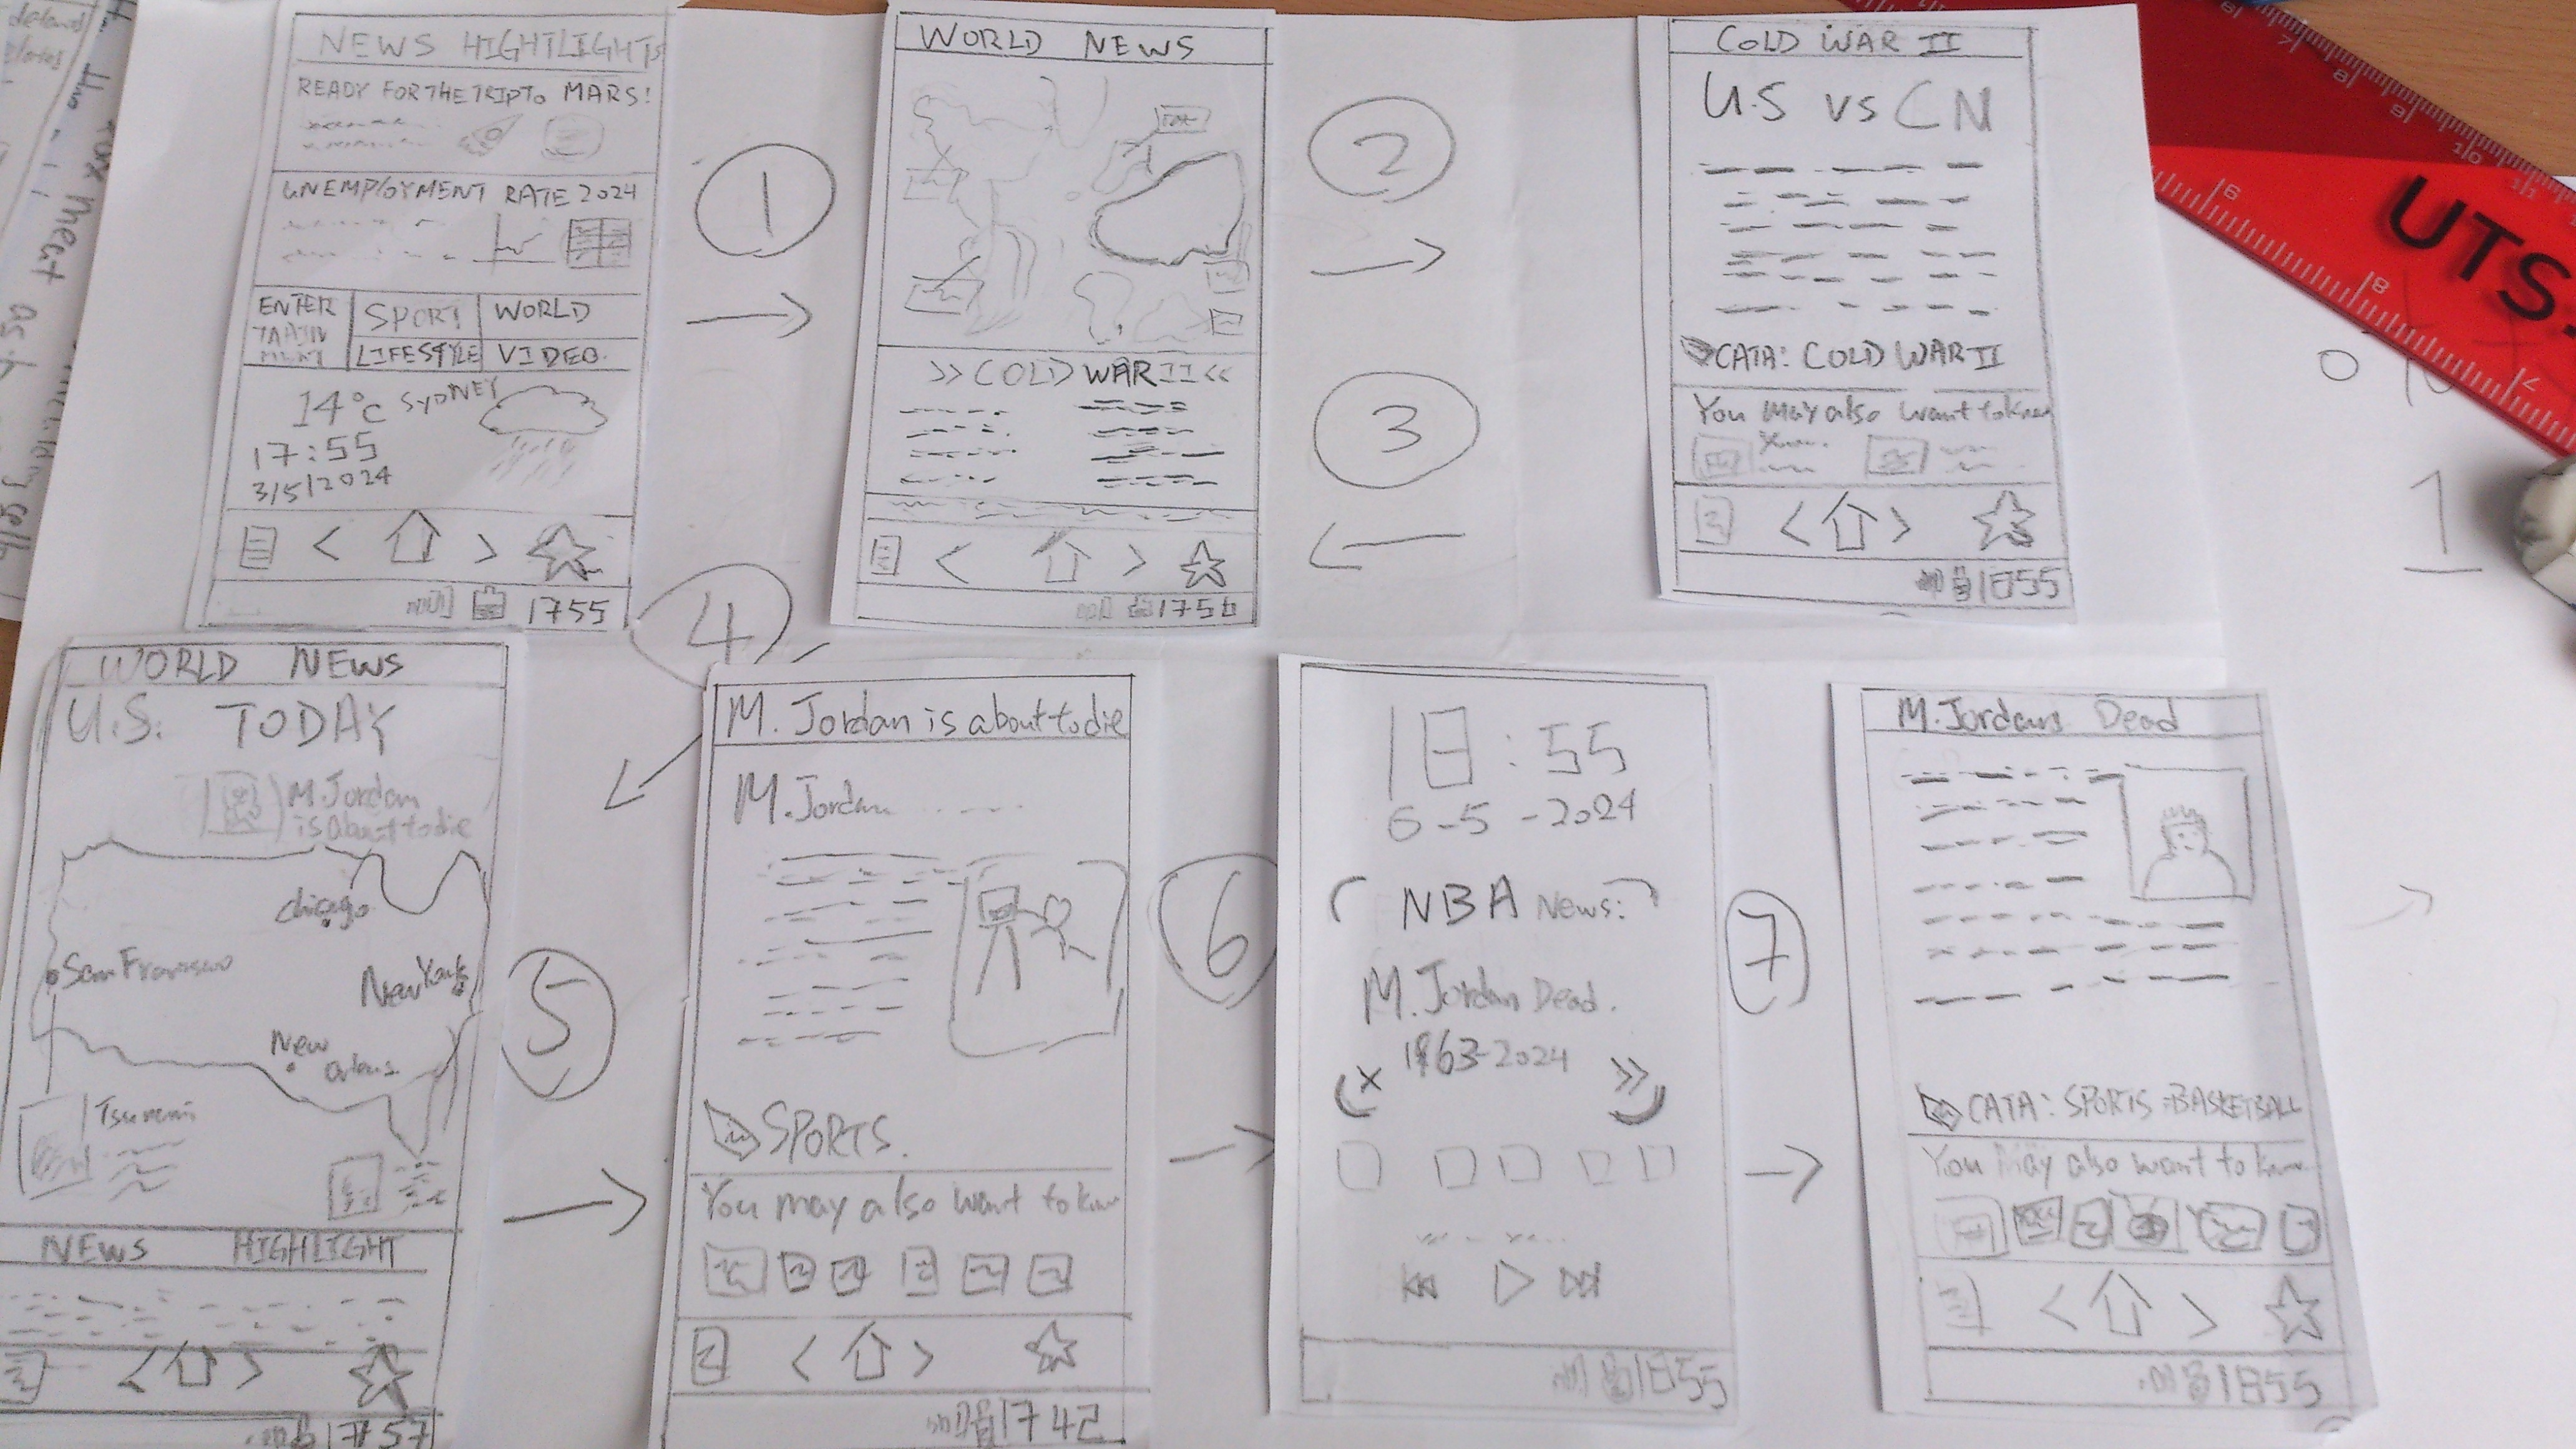 NEWS HIGHTLIGHTS
READY FOR THE TRIP TO MARS!
UNEMPLOYMENT RATE 2024
ENTER
TAAIN
MENT
SPORT
WORLD
LIFESTYLE
VIDEO.
14°C SYDNEY
17:55
3/5/2024
< >
1755
1
WORLD NEWS
>> COLD WAR II <<
< >
1756
2
3
COLD WAR II
U.S VS CN
CATA: COLD WAR II
You may also want to know
< >
1855
4
WORLD NEWS
U.S. TODAY
M.Jordan
is about to die
Chicago
San Francisco
New York
New
Orleans
Tsunami
NEWS HIGHLIGHT
< >
1757
5
M. Jordan is about to die
M.Jordan
SPORTS.
You may also want to know
< >
1742
6
18:55
6-5-2024
NBA News:
M.Jordan Dead.
1963-2024
x >>
1855
7
M.Jordans Dead
CATA: SPORTS-BASKETBALL
You may also want to know
< >
1855
UTS